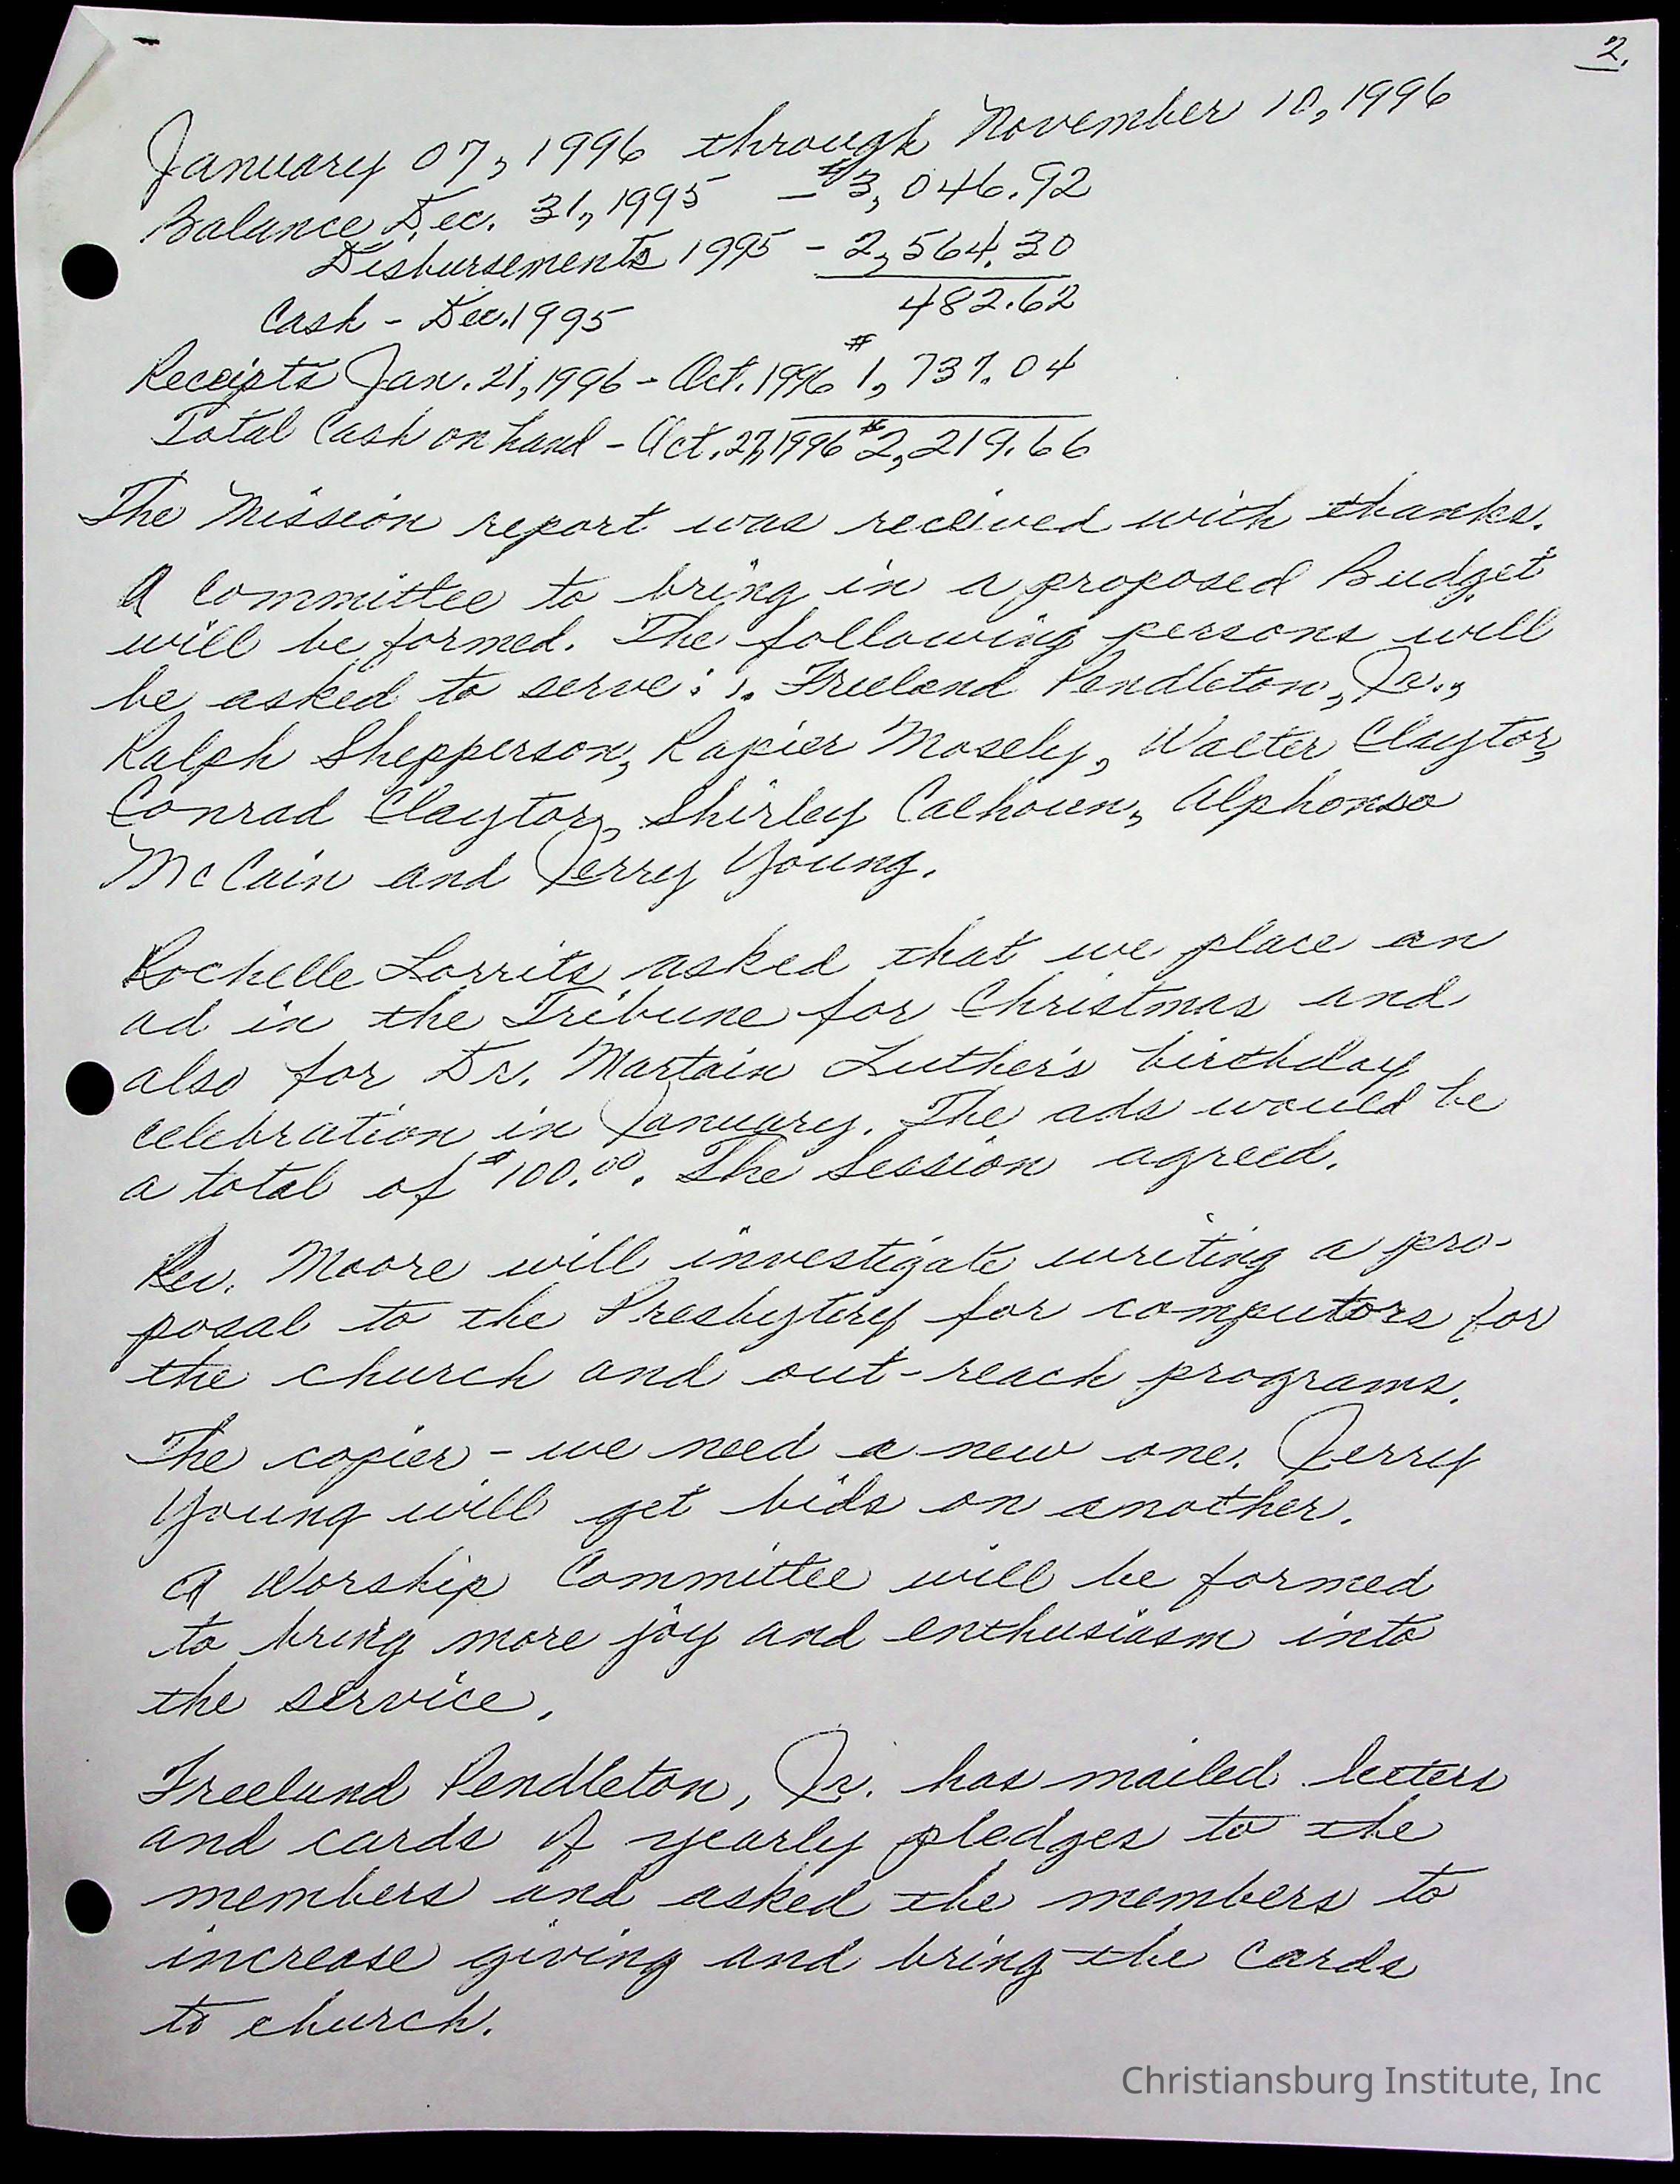 2.
January 07, 1996 through November 10, 1996
Balance Dec. 31, 1995 - $3,046.92
Disbursements 1995 - 2,564.30
482.62
Cash - Dec. 1995
Receipts Jan. 21, 1996 - Oct. 1996 $1,737.04
Total Cash on hand - Oct. 27, 1996 $2,219.66
The Mission report was received with thanks.
A Committee to bring in a proposed Budget
will be formed. The following persons will
be asked to serve: Freeland Pendleton, Jr.,
Ralph Shepperson, Rapier Mosely, Walter Claytor,
Conrad Claytor, Shirley Calhoun, Alphonso
McCain and Jerry Young.
Rochelle Lorrits asked that we place an
ad in the Tribune for Christmas and
also for Dr. Martain Luther's birthday
celebration in January. The ads would be
a total of $100.00. The Session agreed.
Rev. Moore will investigate writing a pro-
posal to the Presbytery for computors for
the church and out-reach programs.
The copier - we need a new one. Jerry
Young will get bids on another.
A Worship Committee will be formed
to bring more joy and enthusiasm into
the service.
Freeland Pendleton, Jr. has mailed letters
and cards of yearly pledges to the
members and asked the members to
increase giving and bring the cards
to church.
Christiansburg Institute, Inc